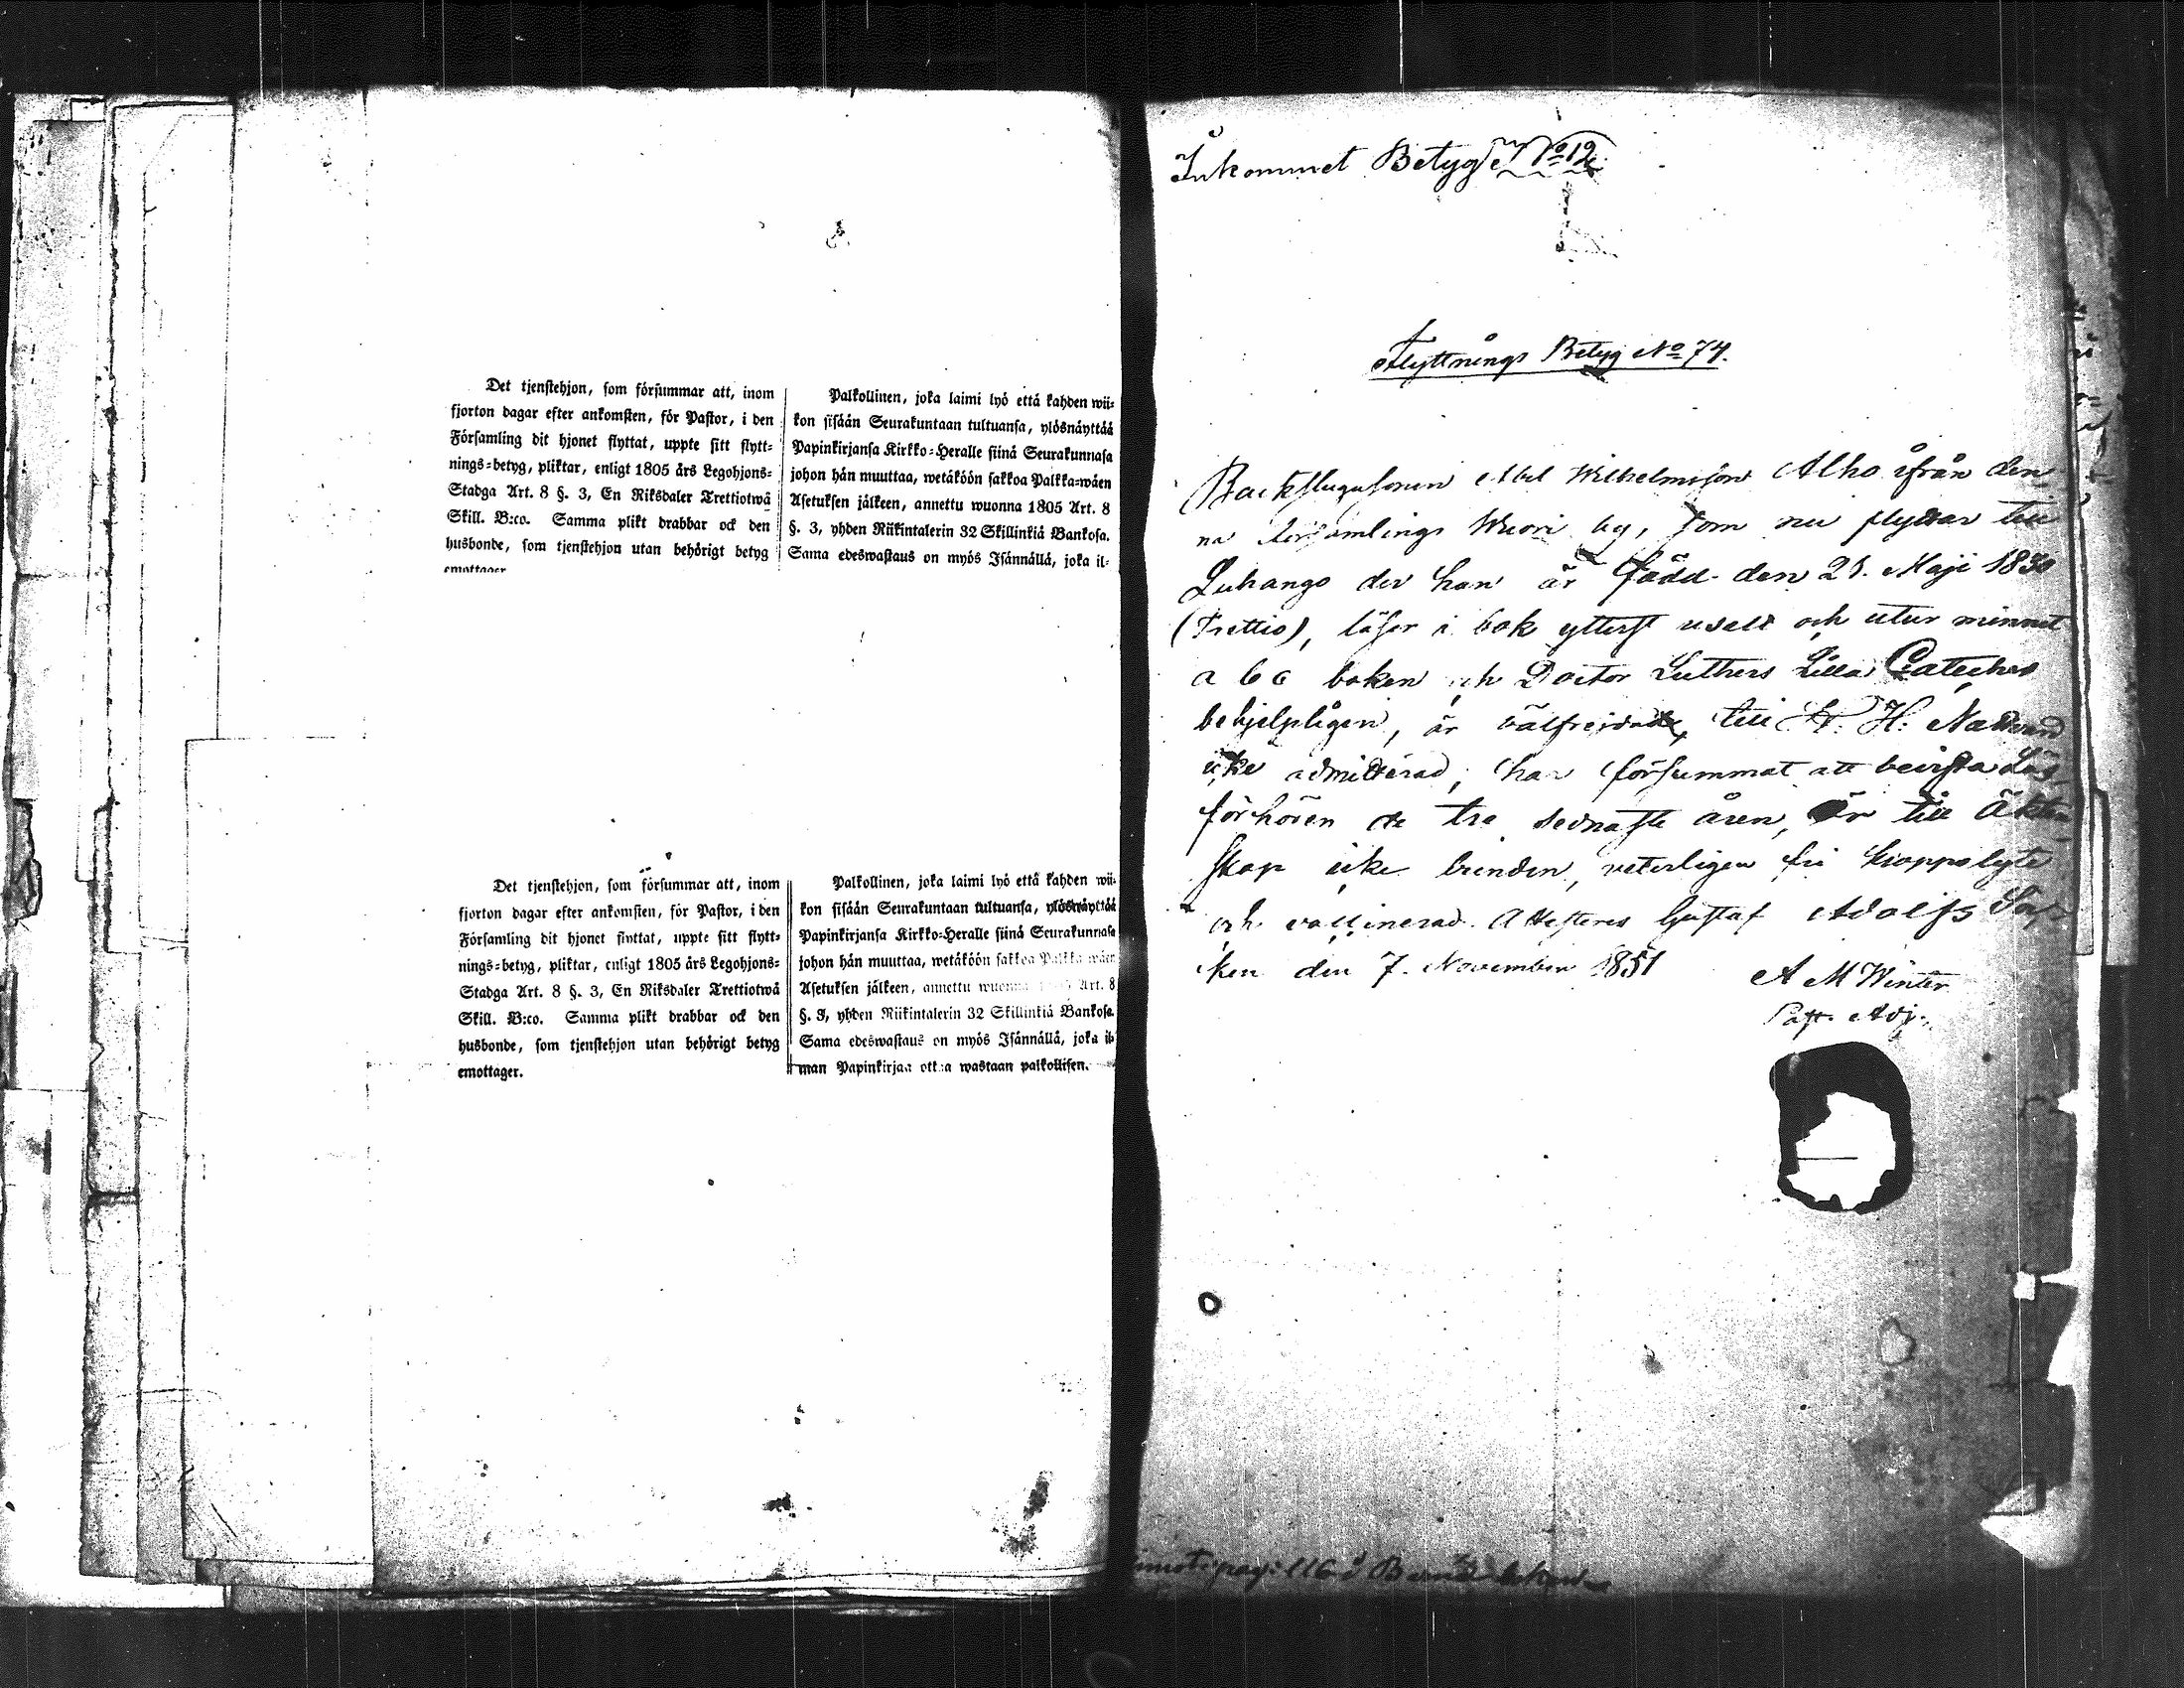 Det tjenstehjon, som försummar att, inom
fjorton dagar efter ankomsten, för Pastor, i den
Församling dit hjonet flyttat, uppte sitt flytt-
nings-betyg, pliktar, enligt 1805 års Legohjons-
Stadga Art. 8 §. 3, En Riksdaler Trettiotwå
Skill. B:co. Samma plikt drabbar ock den
husbonde, som tjenstehjon utan behörigt betyg
emottager
Palkollinen, joka laimi lyö että kahden wii-
kon sisään Seurakuntaan tultuansa, ylösnäyttää
Papinkirjansa Kirkko-Heralle siinä Seurakunnasa
johon hän muuttaa, wetäköön sakkoa Palkka-wäen
Asetuksen jälkeen, annettu wuonna 1805 Art. 8
§. 3, yhden Riikintalerin 32 Skillinkiä Bankosa.
Sama edeswastaus on myös Isännällä, joka il-
Det tjenstehjon, som försummar att, inom
fjorton dagar efter ankomsten, för Pastor, i den
Församling dit hjonet flyttat, uppte sitt flytt-
nings-betyg, pliktar, enligt 1805 års Legohjons-
Stadga Art. 8 §. 3, En Riksdaler Trettiotwå
Skill. B:co. Samma plikt drabbar ock den
husbonde, som tjenstehjon utan behörigt betyg
emottager.
Palkollinen, joka laimi lyö että kahden wii-
kon sisään Seurakuntaan tultuansa, ylösnäyttää
Papinkirjansa Kirkko-Heralle siinä Seurakunnasa
johon hän muuttaa, wetäköön sakkoa Palkka-wäen
Asetuksen jälkeen, annettu wuonna 1805 Art. 8
§. 3, yhden Riikintalerin 32 Skillinkiä Bankosa.
Sama edeswastaus on myös Isännällä, joka il-
man Papinkirjaa ottaa wastaan palkollisen.
Inkommet Betyg No 12
Flyttnings Betyg No 74.
Backstugusonen Abel Wilhelmsson Alho ifrån den-
na Församlings Wuori by, som nu flyttar till
Luhango der han är född den 21. Maji 1830
(Trettio), läser i bok ytterst uselt och utur minnet
a b c boken och Doctor Luthers Lilla Cateches
behjelpligen, är välfrejdad, till H. H. Nattvard
icke admitterad, har försummat att bevista Läs-
förhören de tre sednaste åren, är till Äkten-
skap icke bunden, veterligen fri kroppslyte
och vaccinerad. Attesteres Gustaf Adolfs Soc-
ken den 7. November 1851
A M Winter
Past. Adj.
pag: 116 i